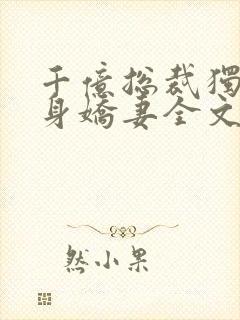 千億總裁獨
身嬌妻全文
然小果